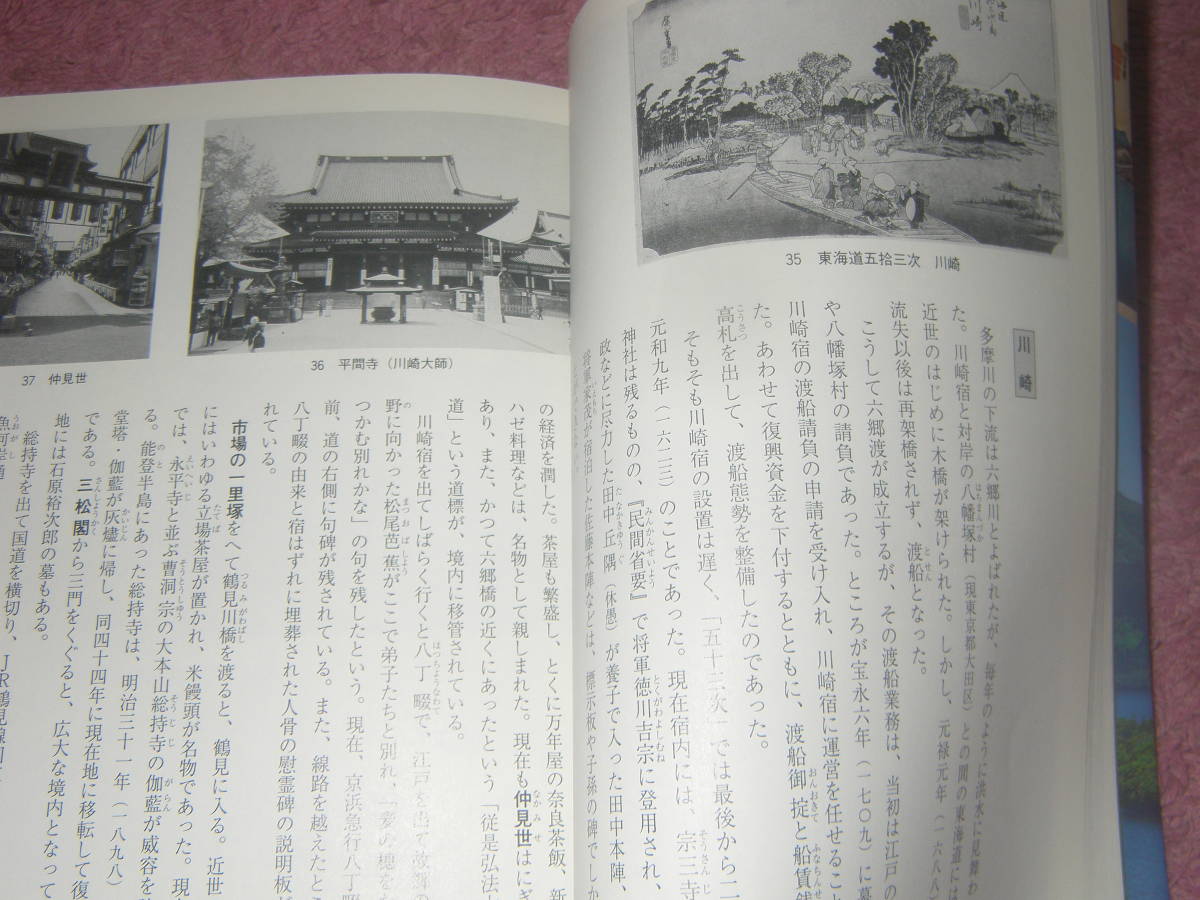 35 東海道五拾三次 川崎
川崎
多摩川の下流は六郷川とよばれたが、毎年のように洪水に見舞わ
た。川崎宿と対岸の八幡塚村（現東京都大田区）との間の東海道には
近世のはじめに木橋が架けられた。しかし、元禄元年（一六八八
流失以後は再架橋されず、渡船となった。
こうして六郷渡が成立するが、その渡船業務は、当初は江戸の
や八幡塚村の請負であった。ところが宝永六年（一七〇九）に幕
川崎宿の渡船請負の申請を受け入れ、川崎宿に運営を任せること
た。あわせて復興資金を下付するとともに、渡船御掟と船賃銭
高札を出して、渡船態勢を整備したのであった。
そもそも川崎宿の設置は遅く、「五十三次」では最後から二
元和九年（一六二三）のことであった。現在宿内には、宗三寺
神社は残るものの、『民間省要』で将軍徳川吉宗に登用され、
政などに尽力した田中丘隅（休愚）が養子で入った田中本陣、
将軍家茂が宿泊した佐藤本陣などは、標示板や子孫の碑でしか
36 平間寺（川崎大師）
37 仲見世
の経済を潤した。茶屋も繁盛し、とくに万年屋の奈良茶飯、新
ハゼ料理などは、名物として親しまれた。現在も仲見世はにぎ
あり、また、かつて六郷橋の近くにあったという「従是弘法大
道」という道標が、境内に移管されている。
川崎宿を出てしばらく行くと八丁畷で、江戸を出て故郷の
野に向かった松尾芭蕉がここで弟子たちと別れ、「麦の穂を
つかむ別れかな」の句を残したという。現在、京浜急行八丁畷
前、道の右側に句碑が残されている。また、線路を越えたとこ
八丁畷の由来と宿はずれに埋葬された人骨の慰霊碑の説明板が
れている。
市場の一里塚をへて鶴見川橋を渡ると、鶴見に入る。近世
にはいわゆる立場茶屋が置かれ、米饅頭が名物であった。現
では、永平寺と並ぶ曹洞宗の大本山総持寺の伽藍が威容を
る。能登半島にあった総持寺は、明治三十一年（一八九八）
堂塔・伽藍が灰燼に帰し、同四十四年に現在地に移転して復
である。三松閣から三門をくぐると、広大な境内となって
地には石原裕次郎の墓もある。
総持寺を出て国道を横切り、JR鶴見線
魚河岸通